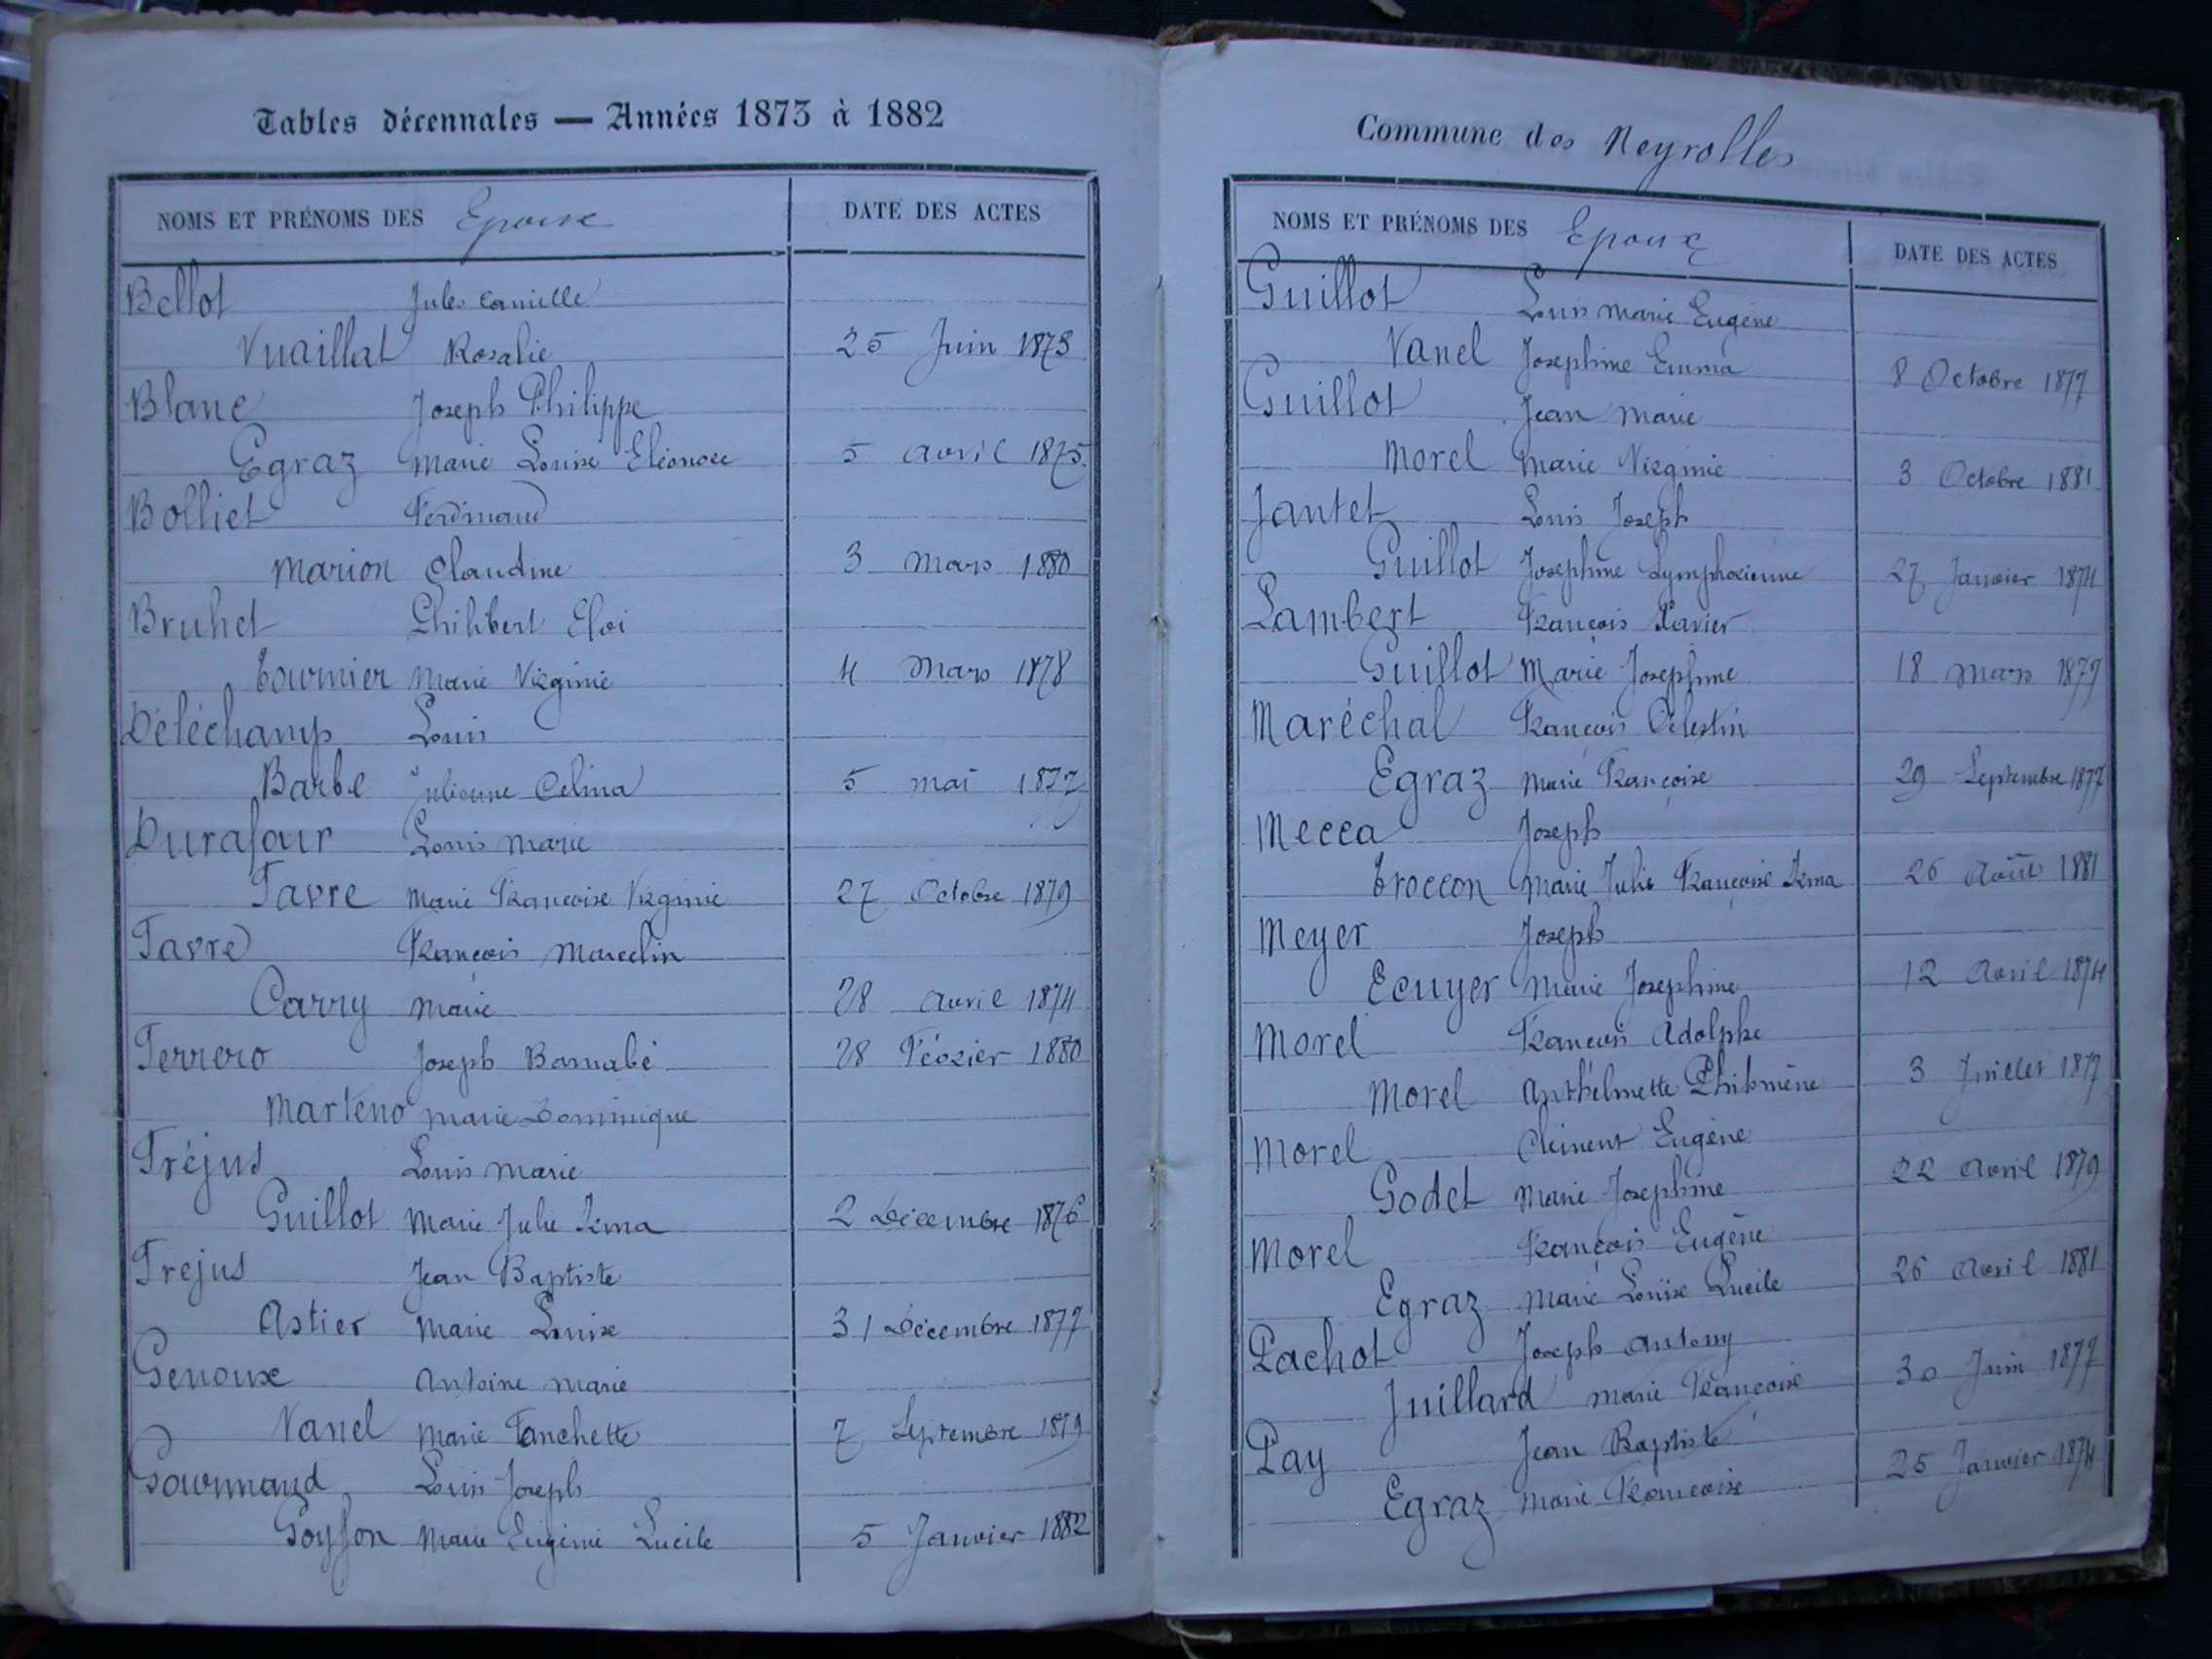 Tables décennales — Années 1873 à 1882
NOMS ET PRÉNOMS DES Epoux DATE DES ACTES
Bellot Jules Camille
Vuaillat Rosalie 25 Juin 1873
Blanc Joseph Philippe
Egraz Marie Louise Eléonore 5 Avril 1875
Bolliet Ferdinand
Marion Claudine 3 Mars 1880
Bruhet Philibert Eloi
Tournier Marie Virginie 4 Mars 1878
Déléchamp Louis
Barbe Julienne Celina 5 Mai 1877
Durafour Louis Marie
Favre Marie Françoise Virginie 27 Octobre 1879
Favre François Marcelin
Carry Marie 28 Avril 1874
Ferrero Joseph Barnabé 28 Février 1880
Marteno Marie Dominique
Fréjus Louis Marie
Guillot Marie Julie Irma 2 Décembre 1876
Frejus Jean Baptiste
Astier Marie Louise 31 Décembre 1877
Genoux Antoine Marie
Vanel Marie Fanchette 7 Septembre 1879
Gourmand Louis Joseph
Goyffon Marie Eugénie Lucile 5 Janvier 1882
Commune des Neyrolles
NOMS ET PRÉNOMS DES Epoux DATE DES ACTES
Guillot Louis Marie Eugène
Vanel Josephine Emma 8 Octobre 1877
Guillot Jean Marie
Morel Marie Virginie 3 Octobre 1881
Jantet Louis Joseph
Guillot Joséphine Symphorienne 27 Janvier 1874
Lambert François Xavier
Guillot Marie Josephine 18 Mars 1879
Maréchal François Célestin
Egraz Marie Françoise 29 Septembre 1877
Mecca Joseph
Troccon Marie Julie Françoise Irma 26 Août 1881
Meyer Joseph
Ecuyer Marie Josephine 12 Avril 1874
Morel François Adolphe
Morel Anthelmette Philomène 3 Juillet 1877
Morel Clément Eugène
Godet Marie Josephine 22 Avril 1879
Morel François Eugène
Egraz Marie Louise Lucile 26 Avril 1881
Pachot Joseph Antony
Juillard Marie Françoise 30 Juin 1877
Pay Jean Baptiste
Egraz Marie Françoise 25 Janvier 1874